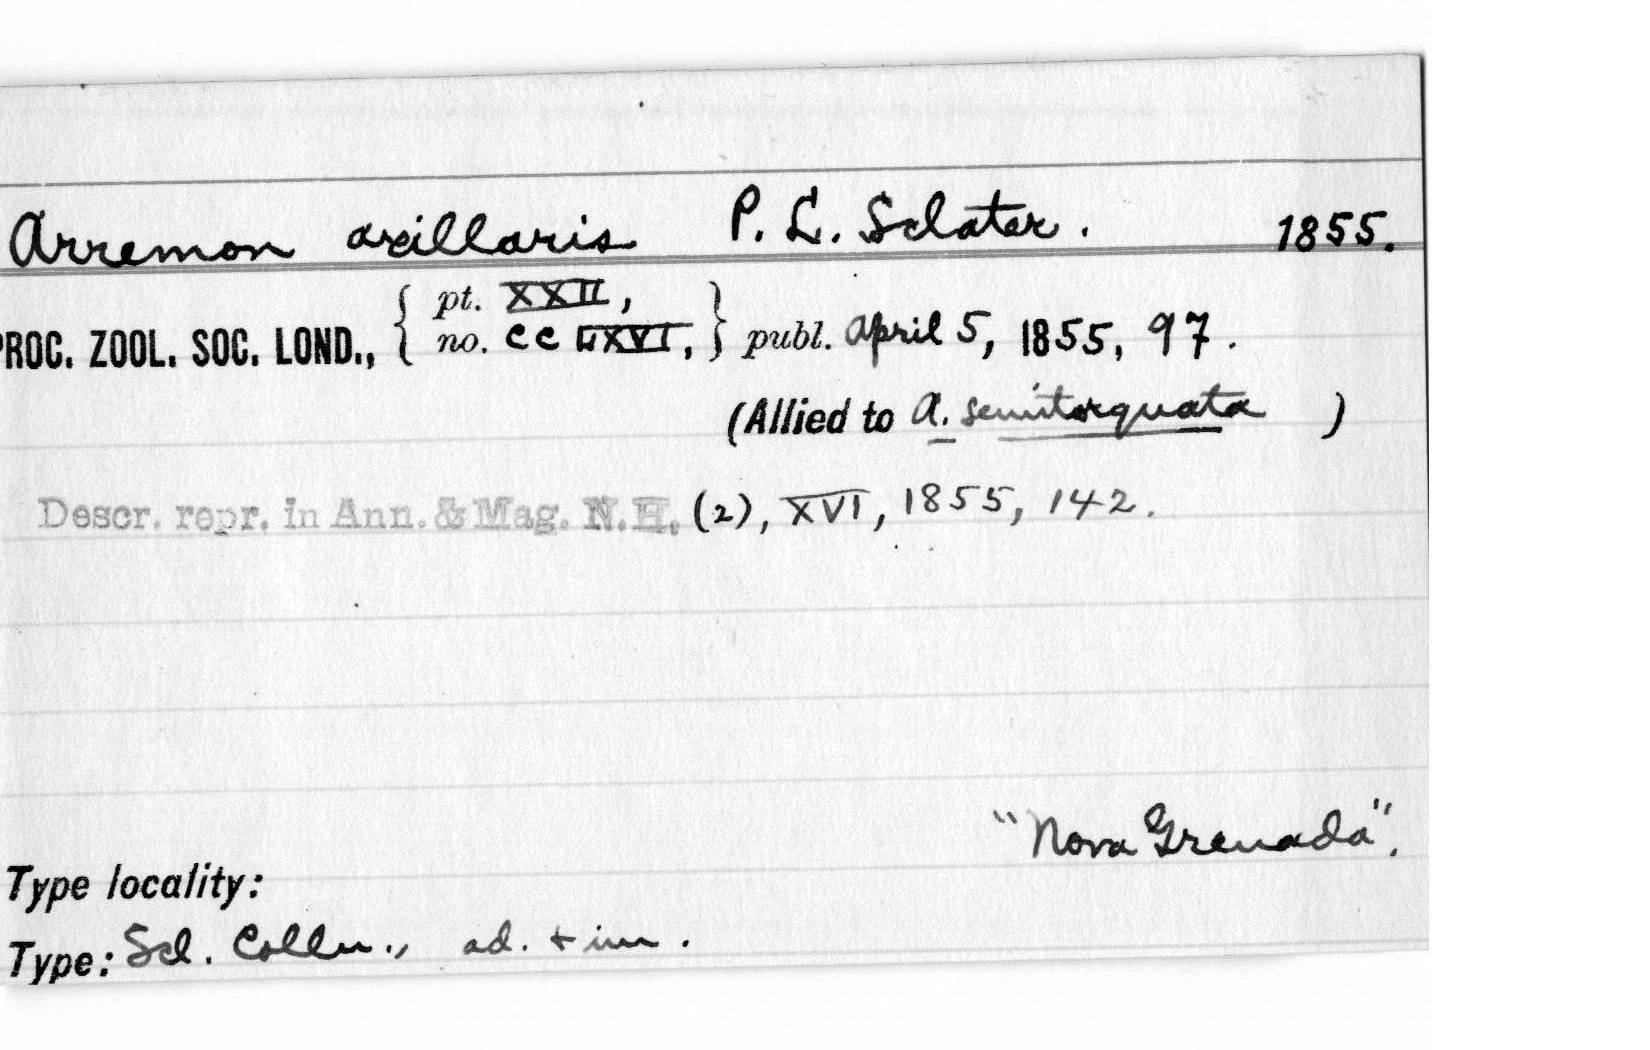 Arremon axillaris P. L. Sclater. 1855.
PROC. ZOOL. SOC. LOND., { pt. XXII, no. CCLXXVI, } publ. April 5, 1855, 97.
(Allied to A. semitorquata )
Descr. repr. in Ann. & Mag. N.H. (2), XVI, 1855, 142.
"Nova Grenada".
Type locality:
Type: Scl. Colln., ad. + im.